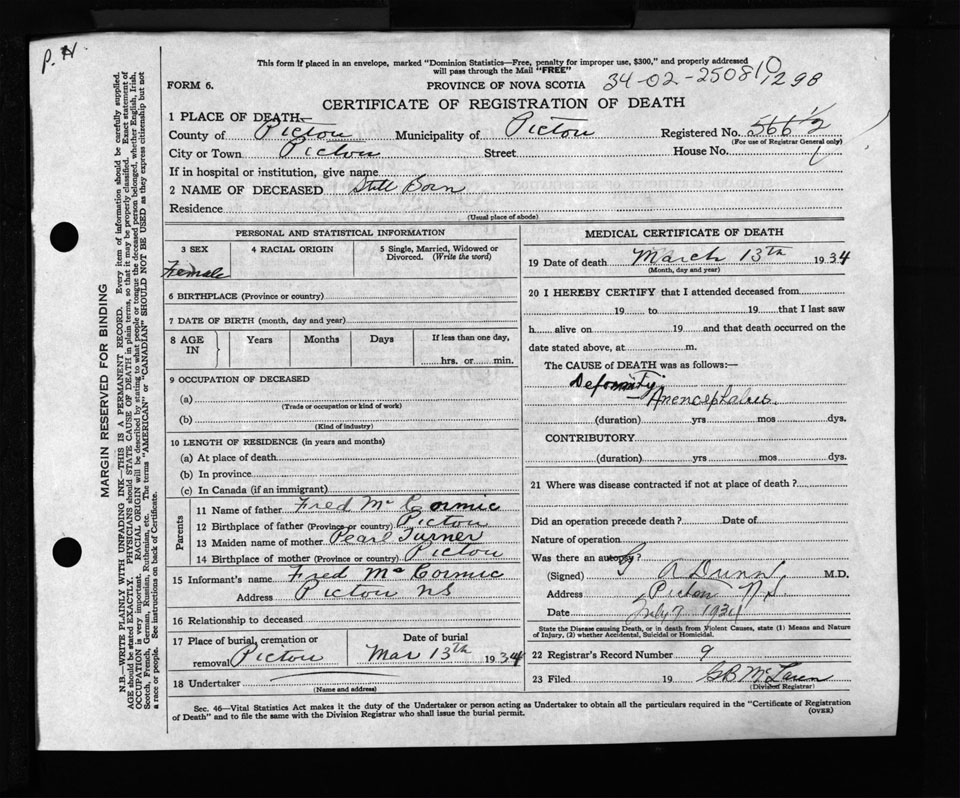 P. H.
This form if placed in an envelope, marked "Dominion Statistics—Free, penalty for improper use, $300," and properly addressed
will pass through the Mail "FREE"
FORM 6.
PROVINCE OF NOVA SCOTIA
34-02-250810
1298
CERTIFICATE OF REGISTRATION OF DEATH
1 PLACE OF DEATH—
County of Pictou Municipality of Pictou Registered No. 566½
(For use of Registrar General only)
City or Town Pictou Street House No.
If in hospital or institution, give name
2 NAME OF DECEASED Still Born
Residence
(Usual place of abode)
PERSONAL AND STATISTICAL INFORMATION
3 SEX 4 RACIAL ORIGIN 5 Single, Married, Widowed or Divorced. (Write the word)
Female
6 BIRTHPLACE (Province or country)
7 DATE OF BIRTH (month, day and year)
8 AGE IN Years Months Days If less than one day, hrs. or min.
9 OCCUPATION OF DECEASED
(a)
(Trade or occupation or kind of work)
(b)
(Kind of industry)
10 LENGTH OF RESIDENCE (in years and months)
(a) At place of death
(b) In province
(c) In Canada (if an immigrant)
Parents
11 Name of father Fred Mc Cormic
12 Birthplace of father (Province or country) Pictou
13 Maiden name of mother Pearl Turner
14 Birthplace of mother (Province or country) Pictou
15 Informant's name Fred Mc Cormic
Address Pictou NS
16 Relationship to deceased
17 Place of burial, cremation or removal Pictou Date of burial Mar 13th 1934
18 Undertaker
(Name and address)
MEDICAL CERTIFICATE OF DEATH
19 Date of death March 13th 1934
(Month, day and year)
20 I HEREBY CERTIFY that I attended deceased from
19 to 19 that I last saw
h alive on 19 and that death occurred on the
date stated above, at m.
The CAUSE OF DEATH was as follows:—
Deformity
Anencephalus
(duration) yrs mos dys.
CONTRIBUTORY
(duration) yrs mos dys.
21 Where was disease contracted if not at place of death?
Did an operation precede death? Date of
Nature of operation
Was there an autopsy?
(Signed) G A Dunn M.D.
Address Pictou N.S.
Date July 7 1934
State the Disease causing Death, or in death from Violent Causes, state (1) Means and Nature
of Injury, (2) whether Accidental, Suicidal or Homicidal.
22 Registrar's Record Number 9
23 Filed 19 GB McLaren
(Division Registrar)
Sec. 46—Vital Statistics Act makes it the duty of the Undertaker or person acting as Undertaker to obtain all the particulars required in the "Certificate of Registration
of Death" and to file the same with the Division Registrar who shall issue the burial permit.
(OVER)
MARGIN RESERVED FOR BINDING
N.B.—WRITE PLAINLY WITH UNFADING INK—THIS IS A PERMANENT RECORD. Every item of information should be carefully supplied.
AGE should be stated EXACTLY. PHYSICIANS should STATE CAUSE OF DEATH in plain terms, so that it may be properly classified. Exact statement of
OCCUPATION is very important. RACIAL ORIGIN will be described by stating to what people or tongue the deceased person belonged, whether English, Irish,
Scotch, French, German, Russian, Ruthenian, etc. The terms "AMERICAN" or "CANADIAN" SHOULD NOT BE USED as they express citizenship but not
a race or people. See instructions on back of Certificate.